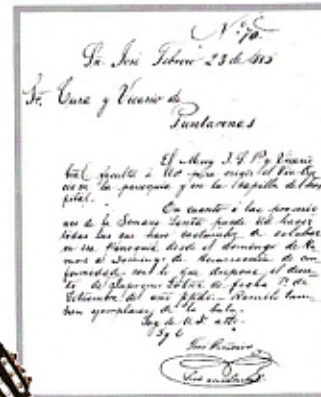 Nº 70.
Sn. José Febrero 23 de 1885
Sr. Cura y Vicario de
Puntarenas
El Muy I. S. P. y Vicario
Gral. faculta á Ud. para erigir el Via-Cru
cis en la parroquia y en la Capilla del hos
pital.
En cuanto á las procesio
nes de la Semana Santa puede Ud. hacer
todas las que haya costumbre de celebrar
en esa Parroquia desde el domingo de Ra
mos al Domingo de Resurrección de con
formedad con lo que dispone el decre
to de fecha 1º de
Setiembre del año ppdo. Remito tam
bien ejemplares de la bula.
Soy de Ud. atto.
S y C